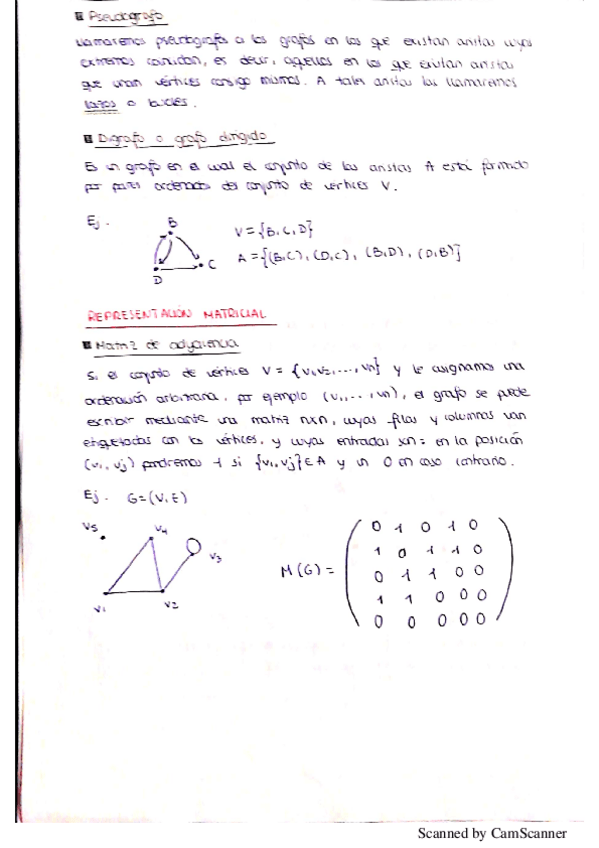 Pseudografo
Llamaremos pseudografos a los grafos en los que existan aristas cuyos
extremos coincidan, es decir, aquellos en los que existan aristas
que unan vértices consigo mismos. A tales aristas las llamaremos
lazos o bucles.
Digrafo o grafo dirigido
Es un grafo en el cual el conjunto de las aristas A está formado
por pares ordenados del conjunto de vértices V.
Ej.
B
C
D
V = {B, C, D}
A = {(B,C), (D,C), (B,D), (D,B)}
REPRESENTACIÓN MATRICIAL
Matriz de adyacencia
Si el conjunto de vértices V = {v1, v2, ..., vn} y le asignamos una
ordenación arbitraria, por ejemplo (v1, ..., vn), el grafo se puede
escribir mediante una matriz nxn, cuyas filas y columnas van
etiquetadas con los vértices, y cuyas entradas son: en la posición
(vi, vj) pondremos 1 si {vi, vj} ∈ A y un 0 en caso contrario.
Ej. G=(V,E)
V5
V4
V3
V1
V2
M(G) =
0 1 0 1 0
1 0 1 1 0
0 1 1 0 0
1 1 0 0 0
0 0 0 0 0
Scanned by CamScanner